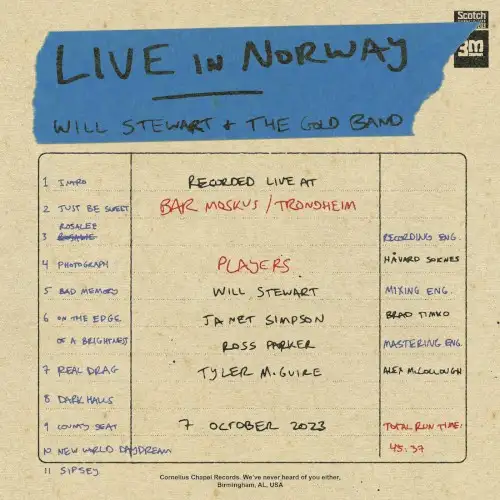 Scotch
3M
LIVE IN NORWAY
WILL STEWART + THE GOLD BAND
1 INTRO
2 JUST BE SWEET
ROSALEE
3 ROSALIE
4 PHOTOGRAPH
5 BAD MEMORY
6 ON THE EDGE
OF A BRIGHTNESS
7 REAL DRAG
8 DARK HALLS
9 COUNTY SEAT
10 NEW WORLD DAYDREAM
11 SIPSEY
RECORDED LIVE AT
BAR MOSKUS / TRONDHEIM
PLAYERS
WILL STEWART
JANET SIMPSON
ROSS PARKER
TYLER MCGUIRE
7 OCTOBER 2023
RECORDING ENG.
HÅVARD SOKNES
MIXING ENG.
BRAD TIMKO
MASTERING ENG.
ALEX MCCOLLOUGH
TOTAL RUN TIME:
45:37
Cornelius Chapel Records. We've never heard of you either.
Birmingham, AL, USA